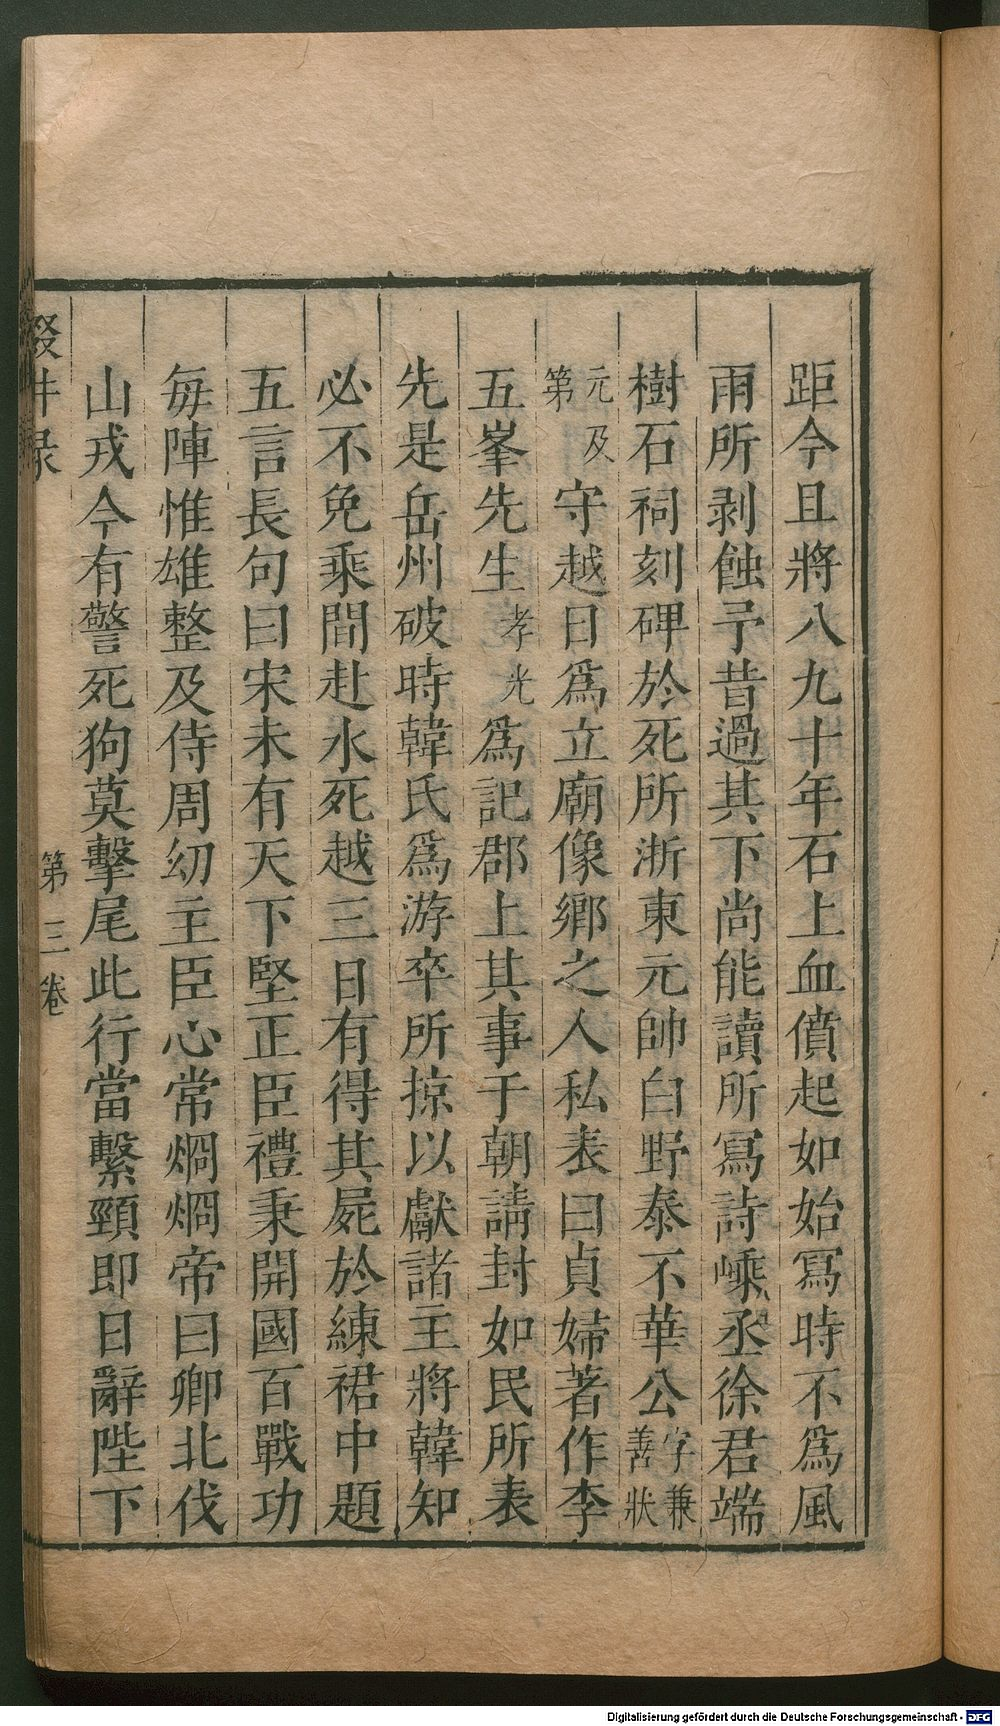 距今且將八九十年石上血僨起如始寫時不爲風
雨所剥蝕予昔過其下尚能讀所寫詩嵊丞徐君端
樹石祠刻碑於死所浙東元帥白野泰不華公字兼善狀
元及第守越日爲立廟像鄉之人私表曰貞婦著作李
五峯先生孝光爲記郡上其事于朝請封如民所表
先是岳州破時韓氏爲游卒所掠以獻諸主將韓知
必不免乘間赴水死越三日有得其屍於練裙中題
五言長句曰宋未有天下堅正臣禮秉開國百戰功
每陣惟雄整及侍周幼主臣心常烱烱帝曰卿北伐
山戎今有警死狗莫擊尾此行當繫頸即日辭陛下
錄
第三卷
Digitalisierung gefördert durch die Deutsche Forschungsgemeinschaft - DFG